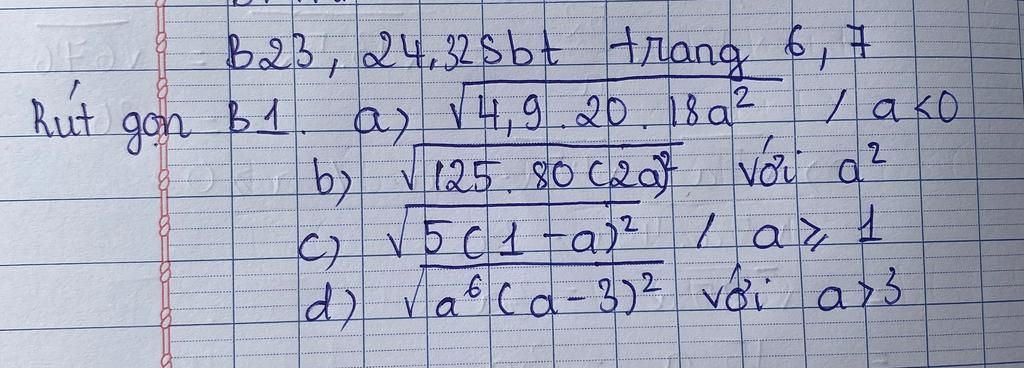 B23, 24, 32 Sbt trang 6, 7
Rút gọn B1. a) √4,9 . 20 . 18a² / a < 0
b) √125 . 80 (2a)² với a²
c) √5(1 - a)² / a ⩾ 1
d) √a⁶(a - 3)² với a > 3